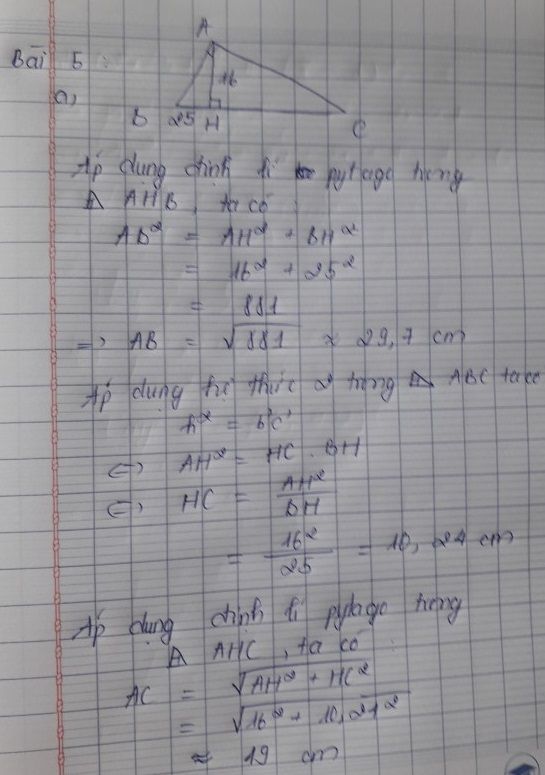 Bài 5:
a,
A
16
B 25 H
C
Áp dụng định lí pytago trong
Δ AHB, ta có:
AB² = AH² + BH²
= 16² + 25²
= 881
=> AB = √881 ≈ 29,7 cm
Áp dụng hệ thức 2 trong Δ ABC ta có
h² = b'c'
<=> AH² = HC . BH
<=> HC = AH²/BH
= 16²/25 = 10,24 cm
Áp dụng định lí pytago trong
Δ AHC, ta có:
AC = √AH² + HC²
= √16² + 10,24²
≈ 19 cm